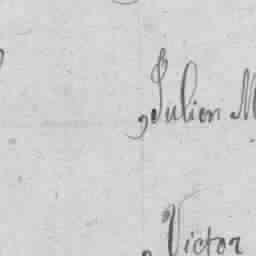 Julien M
Victor